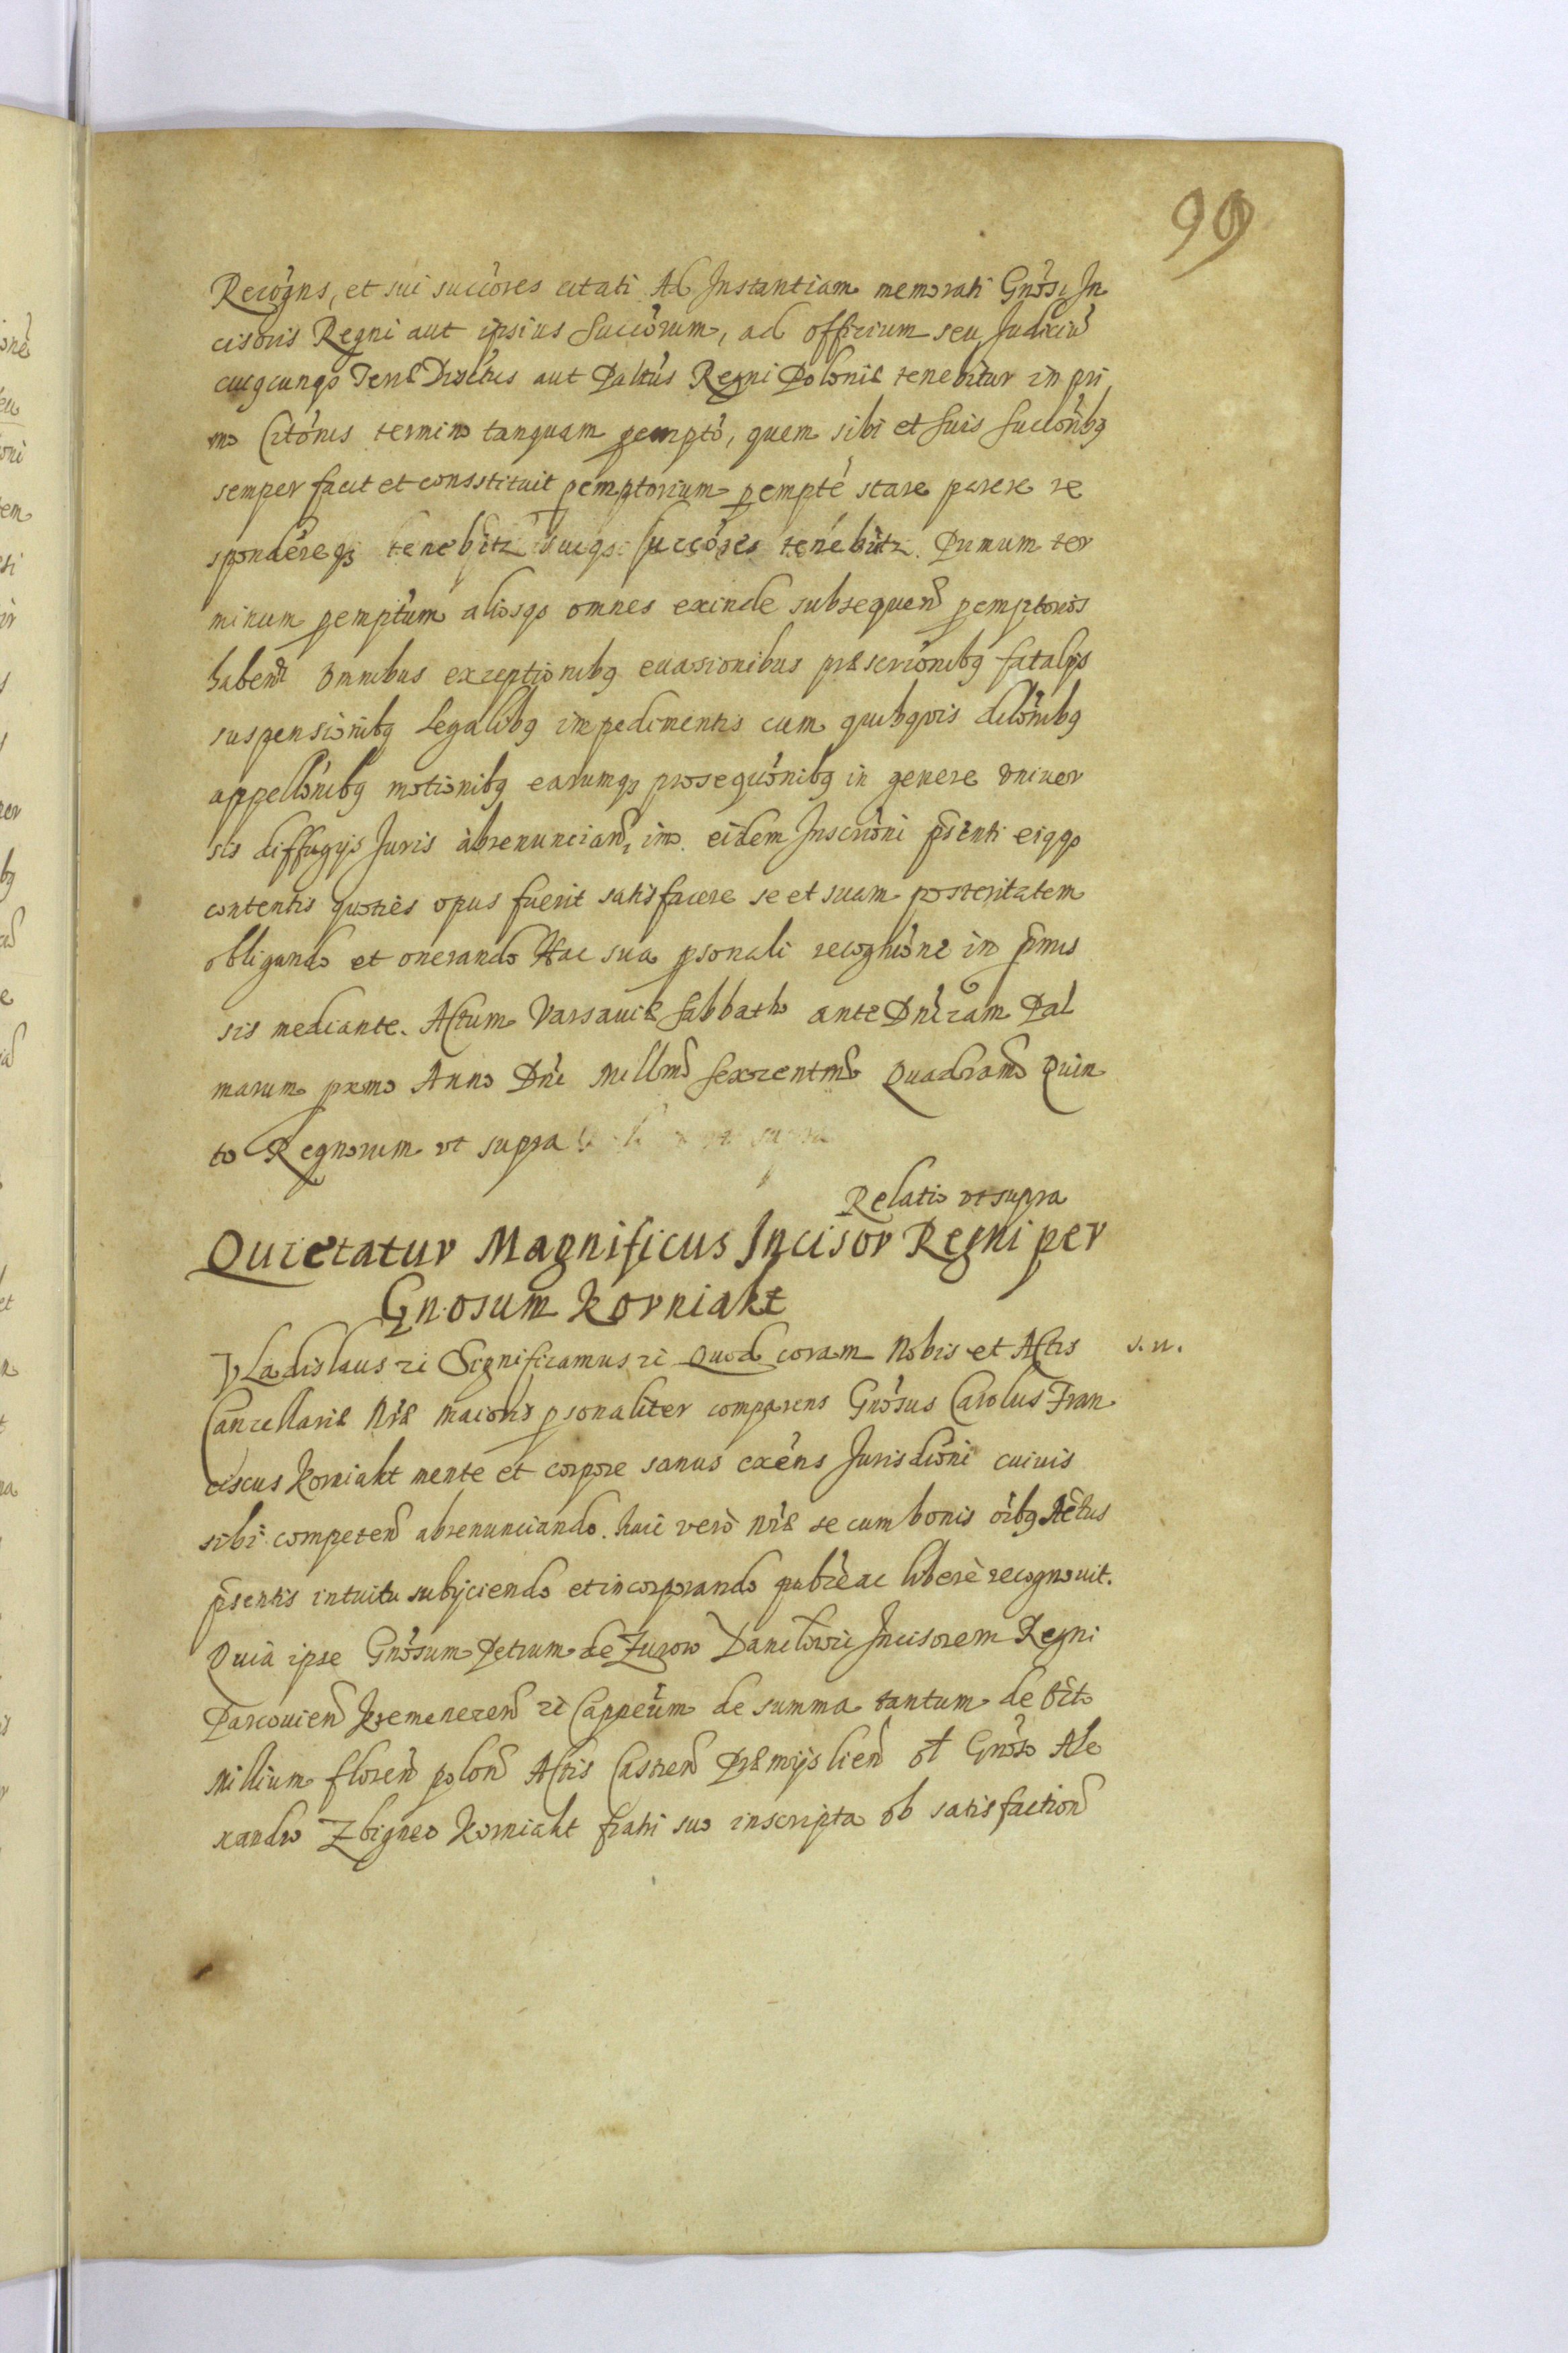 99
Recogns, et sui succores citati Ad Instantiam memorati Gnosi In
cisoris Regni aut ipsius Succorum, ad officium seu Judiciu
cuiqcunqs Terræ Drictus aut Paltus Regni Poloniæ tenebitur in pri
mo Citonis termino tanquam pempto, quem sibi et suis succonibq
semper facit et consstituit pemptorium pempte stare parere re
spondereqs tenebitr suiqs succores tenebutr. Primum ter
minum pemptum aliosqs omnes exinde subsequen pemptorios
haben omnibus exceptionibq euasionibus præscrionibq fatalijs
suspensionibq legalibq impedimentis cum quibquis dilonibq
appellonibq motionibq earumqs prosequonibq in genere vniuer
sis diffugijs Juris abrenuncian, imo eidem Inscrioni psenti eiqqs
contentis quoties opus fuerit satisfacere se et suam posteritatem
obligando et onerando Hac sua psonali recognione in pmis
sis mediante. Actum Varsauiæ Sabbatho ante Dnicam Pal
marum pximo Anno Dni Millmo Sexcentmo Quadramo Quin
to Regnorum vt supra
Relatio vt supra
Quietatur Magnificus Incisor Regni per
Gn.osum Korniakt
Vladislaus zi Significamus zi Quod coram Nobis et Actis s.n.
Cancellariæ Nræ maioris psonaliter comparens Gnosus Carolus Fran
ciscus Korniakt mente et corpore sanus exens Jurisdioni cuiuis
sibi competen abrenunciando. huic vero nræ se cum bonis oibq Actus
psentis intuitu subijciendo et incorporando publice ac libere recognouit.
Quia ipse Gnosum Petrum de Zurow Danilowic Incisorem Regni
Parcouien Kremenecen zi Cappeum de summa tantum de octo
Millium floren polon Actis Castren Præmysliens ol Gnoso Ale
xandro Zbigneo Korniakt fratri suo inscripta ob satisfaction